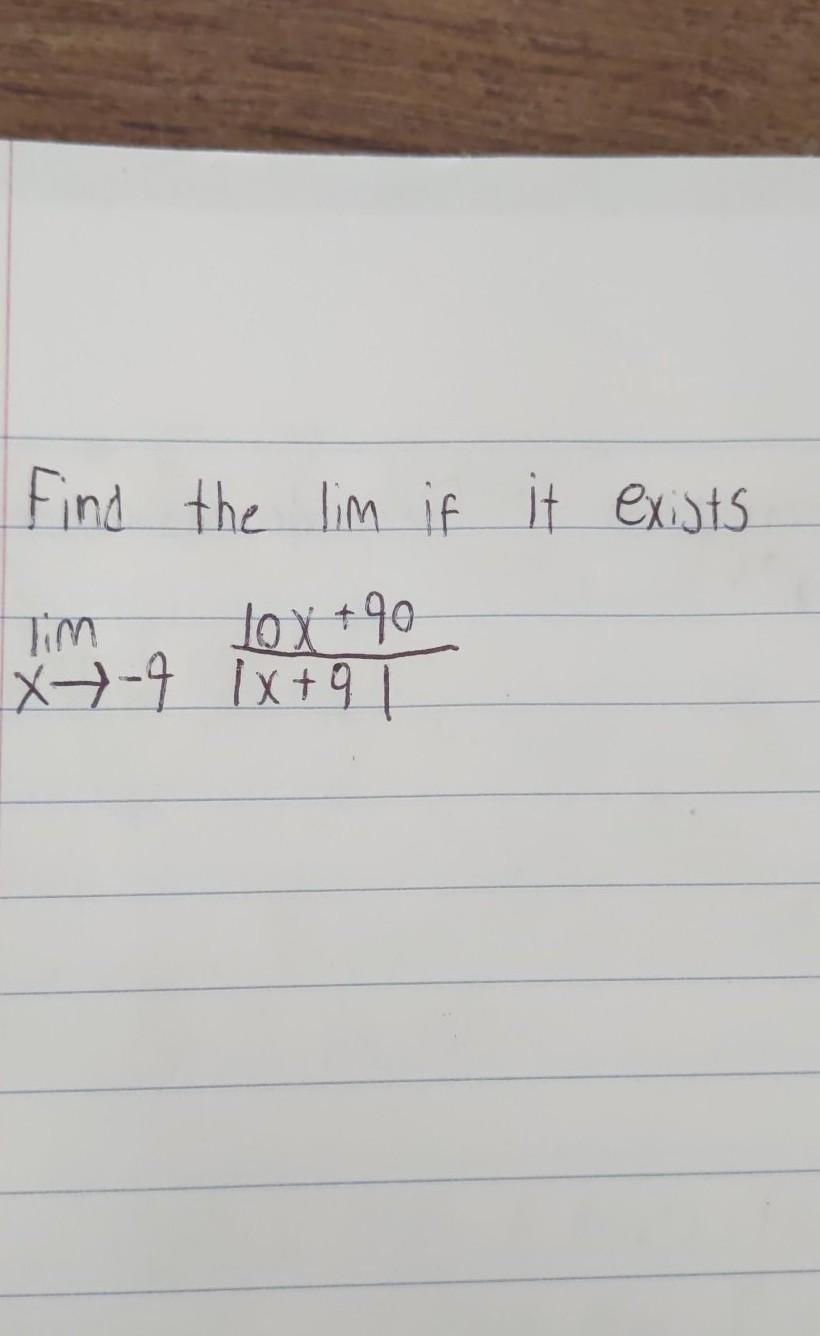 Find the lim if it exists
lim 10x+90
x→-9 |x+9|